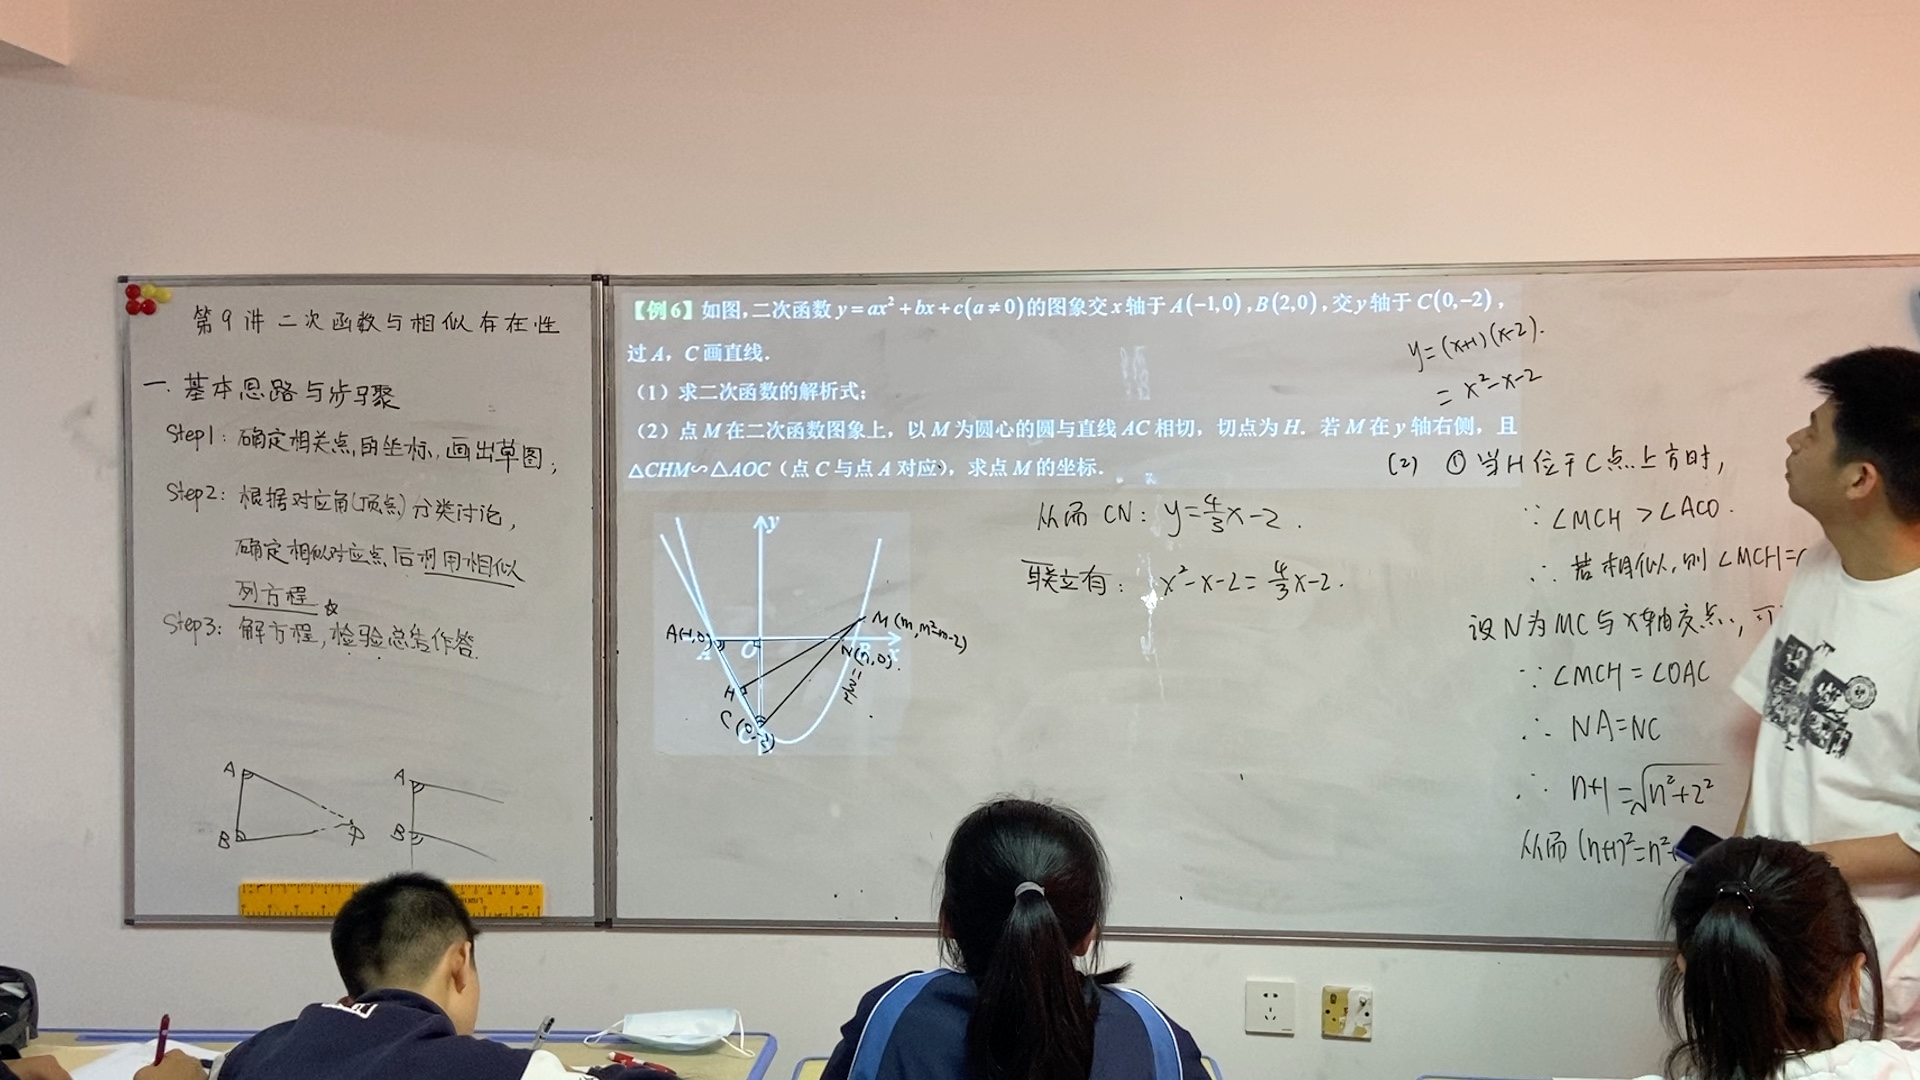 第9讲 二次函数与相似存在性
一. 基本思路与步骤
Step1: 确定相关点的坐标, 画出草图;
Step2: 根据对应角(顶点)分类讨论,
确定相似对应点后利用相似
列方程
Step3: 解方程, 检验总结作答.
A
B
P
A
B
【例6】如图,二次函数 y=ax²+bx+c(a≠0)的图象交 x 轴于 A(-1,0),B(2,0),交 y 轴于 C(0,-2),
过 A，C 画直线.
(1) 求二次函数的解析式;
(2) 点 M 在二次函数图象上，以 M 为圆心的圆与直线 AC 相切，切点为 H. 若 M 在 y 轴右侧，且
△CHM∽△AOC（点 C 与点 A 对应），求点 M 的坐标.
y
A(-1,0)
A
O
M(m,m²-m-2)
N(n,0)
x
H
C(0,-2)
从而 CN: y=4/3x-2.
联立有: x²-x-2=4/3x-2.
y=(x+1)(x-2).
=x²-x-2
(2) ① 当H位于C点上方时,
∵ ∠MCH>∠ACO.
∴ 若相似, 则 ∠MCH=
设N为MC与x轴交点,
∵ ∠MCH=∠OAC
∴ NA=NC
∴ n+1=√n²+2²
从而 (n+1)²=n²+